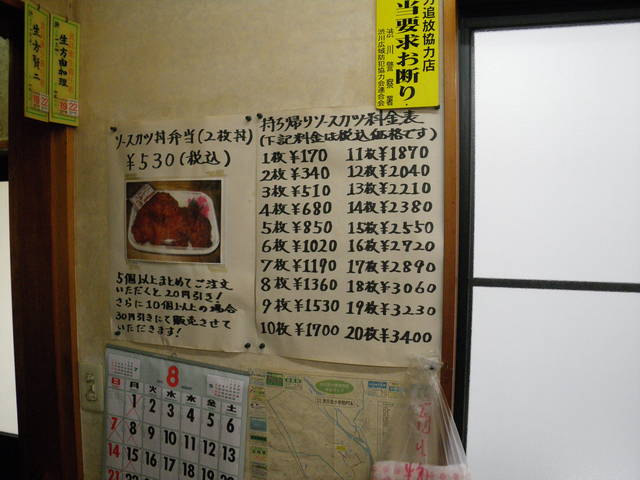 生方賢二
生方由加理
19 22
19 22
力追放協力店
当要求お断り
渋川警察署
渋川広域防犯協力会連合会
ソースカツ丼弁当(2枚丼)
¥530(税込)
5個以上まとめてご注文
いただくと20円引き!
さらに10個以上の場合
30円引きにて販売させて
いただきます!
持ち帰りソースカツ料金表
(下記料金は税込価格です)
1枚¥170 11枚¥1870
2枚¥340 12枚¥2040
3枚¥510 13枚¥2210
4枚¥680 14枚¥2380
5枚¥850 15枚¥2550
6枚¥1020 16枚¥2720
7枚¥1190 17枚¥2890
8枚¥1360 18枚¥3060
9枚¥1530 19枚¥3230
10枚¥1700 20枚¥3400
8
日 月 火 水 木 金 土
1 2 3 4 5 6
7 8 9 10 11 12 13
14 15 16 17 18 19 20
21 22 23